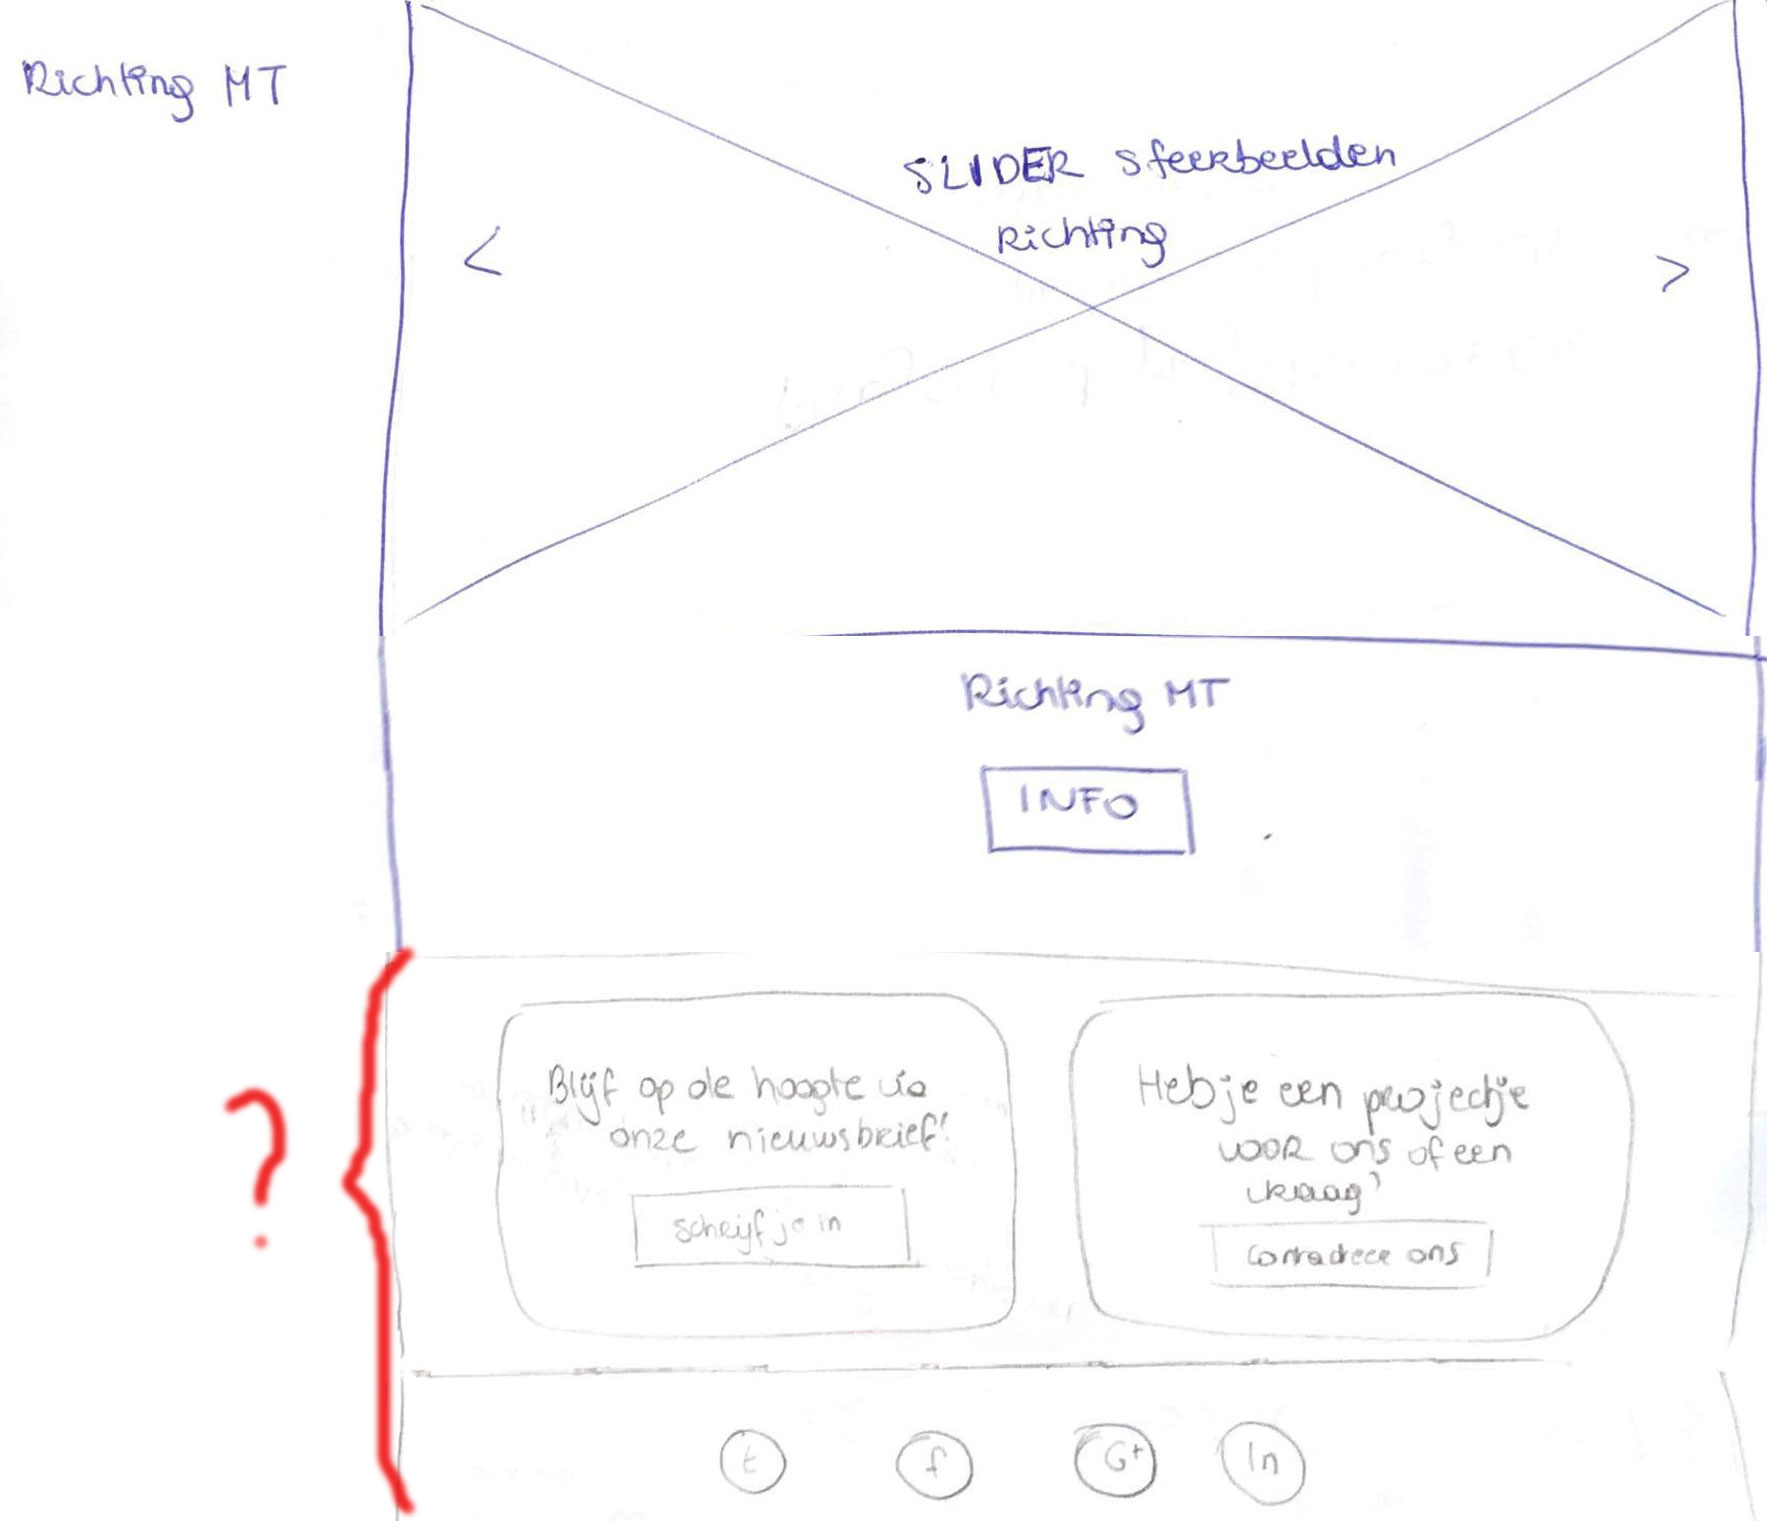 Richting MT
SLIDER sfeerbeelden
Richting
<
>
Richting MT
INFO
?
Blijf op de hoogte via
onze nieuwsbrief!
Schrijf je in
Heb je een projectje
voor ons of een
vraag?
Contacteer ons
t
f
G+
In